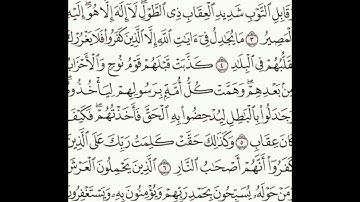 قَابِلِ ٱلتَّوْبِ شَدِيدِ ٱلْعِقَابِ ذِى ٱلطَّوْلِ لَآ إِلَٰهَ إِلَّا هُوَ إِلَيْهِ
ٱلْمَصِيرُ ٣ مَا يُجَٰدِلُ فِىٓ ءَايَٰتِ ٱللَّهِ إِلَّا ٱلَّذِينَ كَفَرُوا۟ فَلَا يَغْرُرْكَ
تَقَلُّبُهُمْ فِى ٱلْبِلَٰدِ ٤ كَذَّبَتْ قَبْلَهُمْ قَوْمُ نُوحٍ وَٱلْأَحْزَابُ
مِنۢ بَعْدِهِمْ وَهَمَّتْ كُلُّ أُمَّةٍۭ بِرَسُولِهِمْ لِيَأْخُذُوهُ
وَجَٰدَلُوا۟ بِٱلْبَٰطِلِ لِيُدْحِضُوا۟ بِهِ ٱلْحَقَّ فَأَخَذْتُهُمْ فَكَيْفَ
كَانَ عِقَابِ ٥ وَكَذَٰلِكَ حَقَّتْ كَلِمَتُ رَبِّكَ عَلَى ٱلَّذِينَ
كَفَرُوٓا۟ أَنَّهُمْ أَصْحَٰبُ ٱلنَّارِ ٦ ٱلَّذِينَ يَحْمِلُونَ ٱلْعَرْشَ
وَمَنْ حَوْلَهُۥ يُسَبِّحُونَ بِحَمْدِ رَبِّهِمْ وَيُؤْمِنُونَ بِهِۦ وَيَسْتَغْفِرُونَ